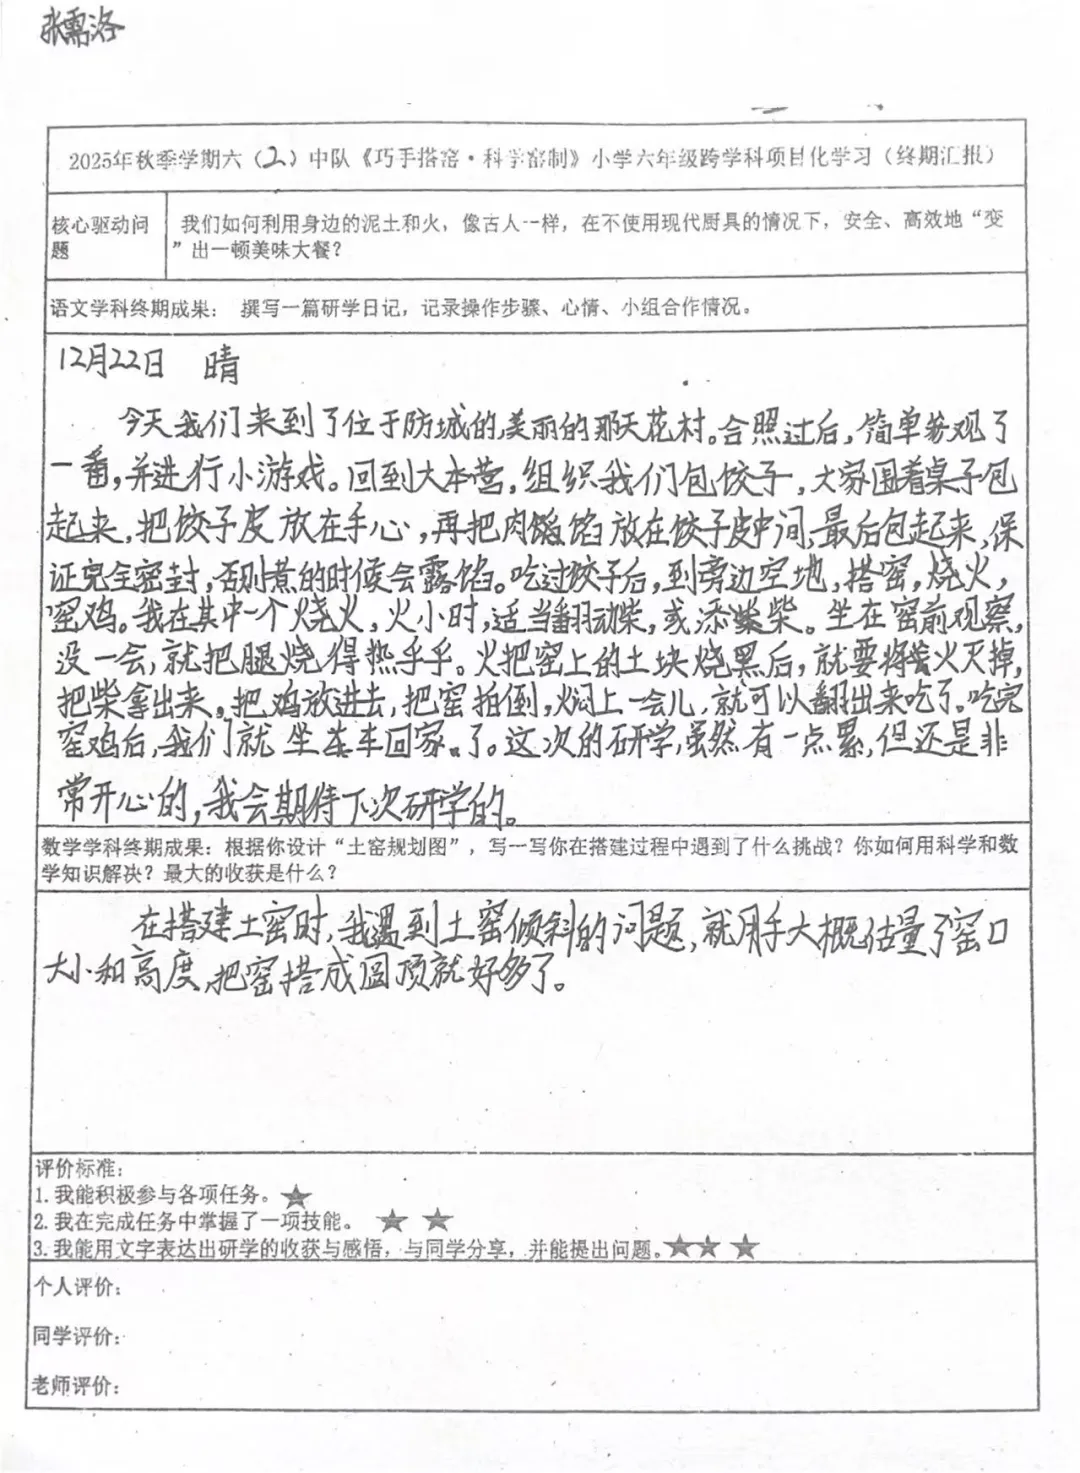 张霈洛
2025年秋季学期六（2）中队《巧手搭窑·科学窑制》小学六年级跨学科项目化学习（终期汇报）
核心驱动问题
我们如何利用身边的泥土和火，像古人一样，在不使用现代厨具的情况下，安全、高效地“变
”出一顿美味大餐？
语文学科终期成果： 撰写一篇研学日记，记录操作步骤、心情、小组合作情况。
12月22日 晴
今天我们来到了位于防城的美丽的那天花村。合照过后，简单参观了
一番，并进行小游戏。回到大本营，组织我们包饺子，大家围着桌子包
起来，把饺子皮放在手心，再把肉馅放在饺子皮中间，最后包起来，保
证完全密封，否则煮的时候会露馅。吃过饺子后，到旁边空地，搭窑，烧火，
窑鸡。我在其中一个烧火，火小时，适当翻动柴，或添柴。坐在窑前观察，
没一会，就把腿烧得热乎乎。火把窑上的土块烧黑后，就要将火灭掉，
把柴拿出来。把鸡放进去，把窑拍倒，焖上一会儿，就可以翻出来吃了。吃完
窑鸡后，我们就坐车回家了。这次的研学，虽然有一点累，但还是非
常开心的，我会期待下次研学的。
数学学科终期成果：根据你设计“土窑规划图”，写一写你在搭建过程中遇到了什么挑战？你如何用科学和数
学知识解决？最大的收获是什么？
在搭建土窑时，我遇到土窑倾斜的问题，就用手大概估量了窑口
大小和高度，把窑搭成圆顶就好多了。
评价标准：
1.我能积极参与各项任务。★
2.我在完成任务中掌握了一项技能。 ★ ★
3.我能用文字表达出研学的收获与感悟，与同学分享，并能提出问题。★★ ★
个人评价：
同学评价：
老师评价：